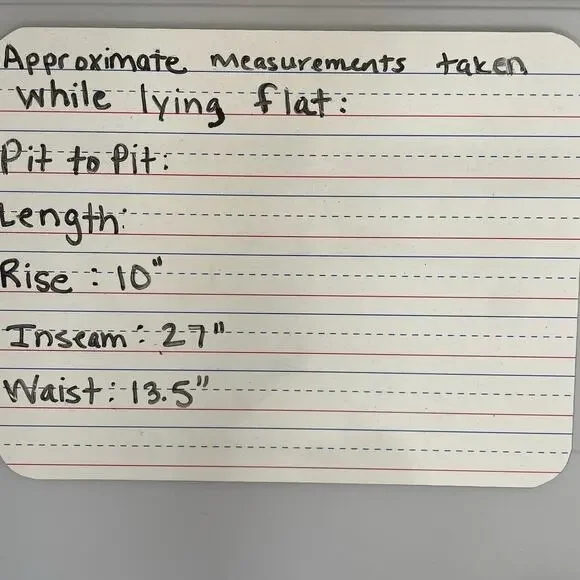 Approximate measurements taken
while lying flat:
Pit to Pit:
Length:
Rise: 10"
Inseam: 27"
Waist: 13.5"